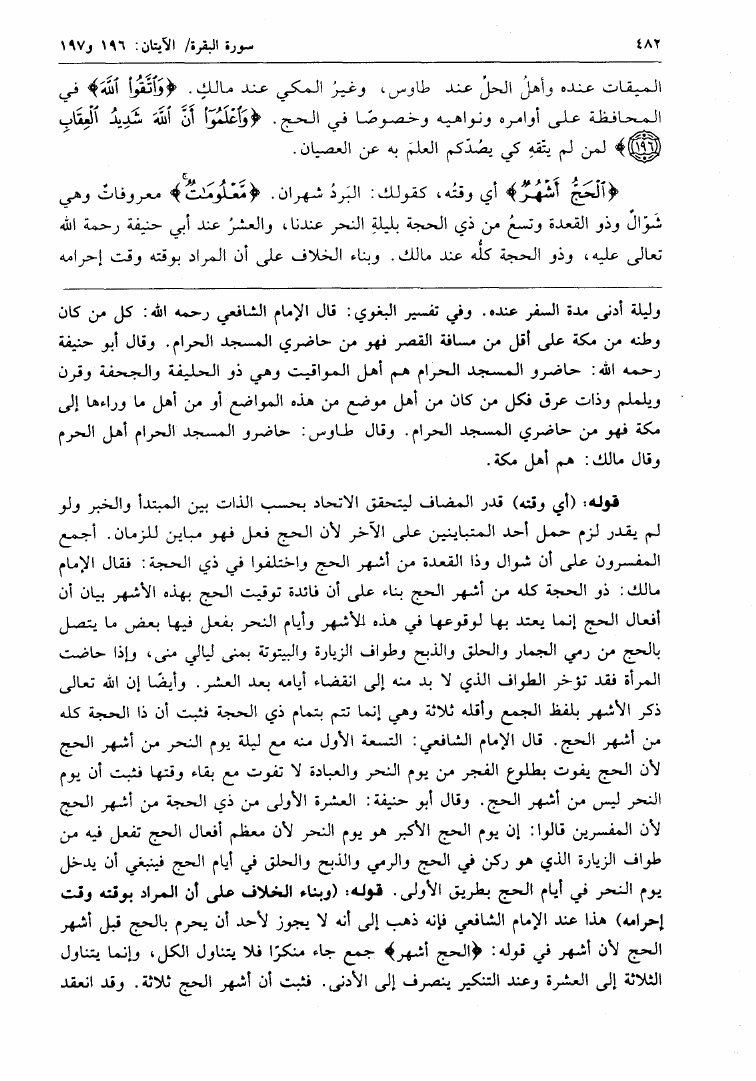 ٤٨٢ سورة البقرة/ الآيتان: ١٩٦ و١٩٧
الميقات عنده وأهلُ الحلِّ عند طاوس، وغيرُ المكي عند مالكٍ. ﴿وَٱتَّقُوا۟ ٱللَّهَ﴾ في
المحافظة على أوامره ونواهيه وخصوصًا في الحج. ﴿وَٱعْلَمُوٓا۟ أَنَّ ٱللَّهَ شَدِيدُ ٱلْعِقَابِ
﴿١٩٦﴾﴾ لمن لم يتّقهِ كي يصُدّكم العلمَ به عن العصيان.
﴿ٱلْحَجُّ أَشْهُرٌ﴾ أي وقتُه، كقولك: البَردُ شهران. ﴿مَّعْلُومَـٰتٌ ۚ﴾ معروفاتٌ وهي
شَوّالٌ وذو القعدة وتسعُ من ذي الحجة بليلةِ النحر عندنا، والعشرُ عند أبي حنيفة رحمة الله
تعالى عليه، وذو الحجة كلُّه عند مالك. وبناء الخلاف على أن المراد بوقته وقت إحرامه
وليلة أدنى مدة السفر عنده. وفي تفسير البغوي: قال الإمام الشافعي رحمه الله: كل من كان
وطنه من مكة على أقل من مسافة القصر فهو من حاضري المسجد الحرام. وقال أبو حنيفة
رحمه الله: حاضرو المسجد الحرام هم أهل المواقيت وهي ذو الحليفة والجحفة وقرن
ويلملم وذات عرق فكل من كان من أهل موضع من هذه المواضع أو من أهل ما وراءها إلى
مكة فهو من حاضري المسجد الحرام. وقال طاوس: حاضرو المسجد الحرام أهل الحرم
وقال مالك: هم أهل مكة.
قوله: (أي وقته) قدر المضاف ليتحقق الاتحاد بحسب الذات بين المبتدأ والخبر ولو
لم يقدر لزم حمل أحد المتباينين على الآخر لأن الحج فعل فهو مباين للزمان. أجمع
المفسرون على أن شوال وذا القعدة من أشهر الحج واختلفوا في ذي الحجة: فقال الإمام
مالك: ذو الحجة كله من أشهر الحج بناء على أن فائدة توقيت الحج بهذه الأشهر بيان أن
أفعال الحج إنما يعتد بها لوقوعها في هذه الأشهر وأيام النحر بفعل فيها بعض ما يتصل
بالحج من رمي الجمار والحلق والذبح وطواف الزيارة والبيتوتة بمنى ليالي منى، وإذا حاضت
المرأة فقد تؤخر الطواف الذي لا بد منه إلى انقضاء أيامه بعد العشر. وأيضًا إن الله تعالى
ذكر الأشهر بلفظ الجمع وأقله ثلاثة وهي إنما تتم بتمام ذي الحجة فثبت أن ذا الحجة كله
من أشهر الحج. قال الإمام الشافعي: التسعة الأول منه مع ليلة يوم النحر من أشهر الحج
لأن الحج يفوت بطلوع الفجر من يوم النحر والعبادة لا تفوت مع بقاء وقتها فثبت أن يوم
النحر ليس من أشهر الحج. وقال أبو حنيفة: العشرة الأولى من ذي الحجة من أشهر الحج
لأن المفسرين قالوا: إن يوم الحج الأكبر هو يوم النحر لأن معظم أفعال الحج تفعل فيه من
طواف الزيارة الذي هو ركن في الحج والرمي والذبح والحلق في أيام الحج فينبغي أن يدخل
يوم النحر في أيام الحج بطريق الأولى. قوله: (وبناء الخلاف على أن المراد بوقته وقت
إحرامه) هذا عند الإمام الشافعي فإنه ذهب إلى أنه لا يجوز لأحد أن يحرم بالحج قبل أشهر
الحج لأن أشهر في قوله: ﴿الحج أشهر﴾ جمع جاء منكرًا فلا يتناول الكل، وإنما يتناول
الثلاثة إلى العشرة وعند التنكير ينصرف إلى الأدنى. فثبت أن أشهر الحج ثلاثة. وقد انعقد